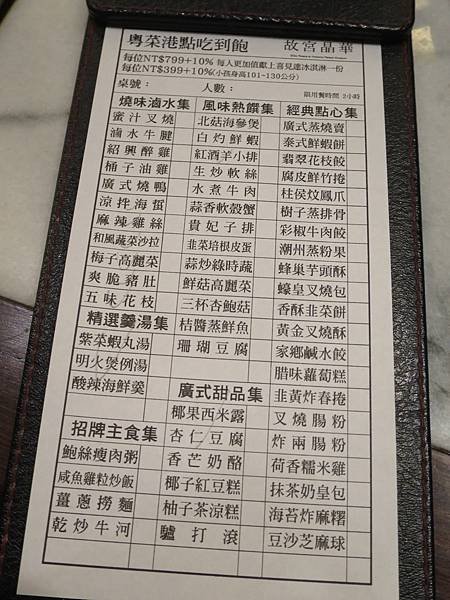 粵菜港點吃到飽
故宮晶華
每位NT$799+10% 每人更加值獻上喜見達冰淇淋一份
每位NT$399+10%(小孩身高101-130公分)
桌號：
人數：
限用餐時間 2小時
燒味滷水集
蜜汁叉燒
滷水牛腱
紹興醉雞
桶子油雞
廣式燒鴨
涼拌海蜇
麻辣雞絲
和風蔬菜沙拉
梅子高麗菜
爽脆豬肚
五味花枝
精選羹湯集
紫菜蝦丸湯
明火煲例湯
酸辣海鮮羹
招牌主食集
鮑絲瘦肉粥
咸魚雞粒炒飯
薑蔥撈麵
乾炒牛河
風味熱饌集
北菇海參煲
白灼鮮蝦
紅酒羊小排
生炒軟絲
水煮牛肉
蒜香軟殼蟹
貴妃子排
韭菜培根皮蛋
蒜炒綠時蔬
鮮菇高麗菜
三杯杏鮑菇
桔醬蒸鮮魚
珊瑚豆腐
廣式甜品集
椰果西米露
杏仁豆腐
香芒奶酪
椰子紅豆糕
柚子茶涼糕
驢打滾
經典點心集
廣式蒸燒賣
泰式鮮蝦餅
翡翠花枝餃
腐皮鮮竹捲
柱侯炆鳳爪
樹子蒸排骨
彩椒牛肉餃
潮州蒸粉果
蜂巢芋頭酥
蠔皇叉燒包
香酥韭菜餅
黃金叉燒酥
家鄉鹹水餃
腊味蘿蔔糕
韭黃炸春捲
叉燒腸粉
炸兩腸粉
荷香糯米雞
抹茶奶皇包
海苔炸麻糬
豆沙芝麻球